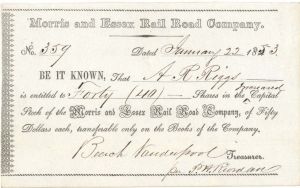 Morris and Essex Rail Road Company.
No. 359 Dated January 22 1853
BE IT KNOWN, That A R Riggs
is entitled to Forty (40) Shares in the Capital
Stock of the Morris and Essex Rail Road Company, of Fifty
Dollars each, transferable only on the Books of the Company,
Beach Vanderpool Treasurer.